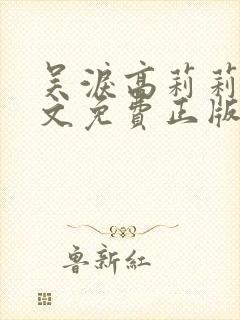 吴淚高莉莉
文免費正版
魯新紅